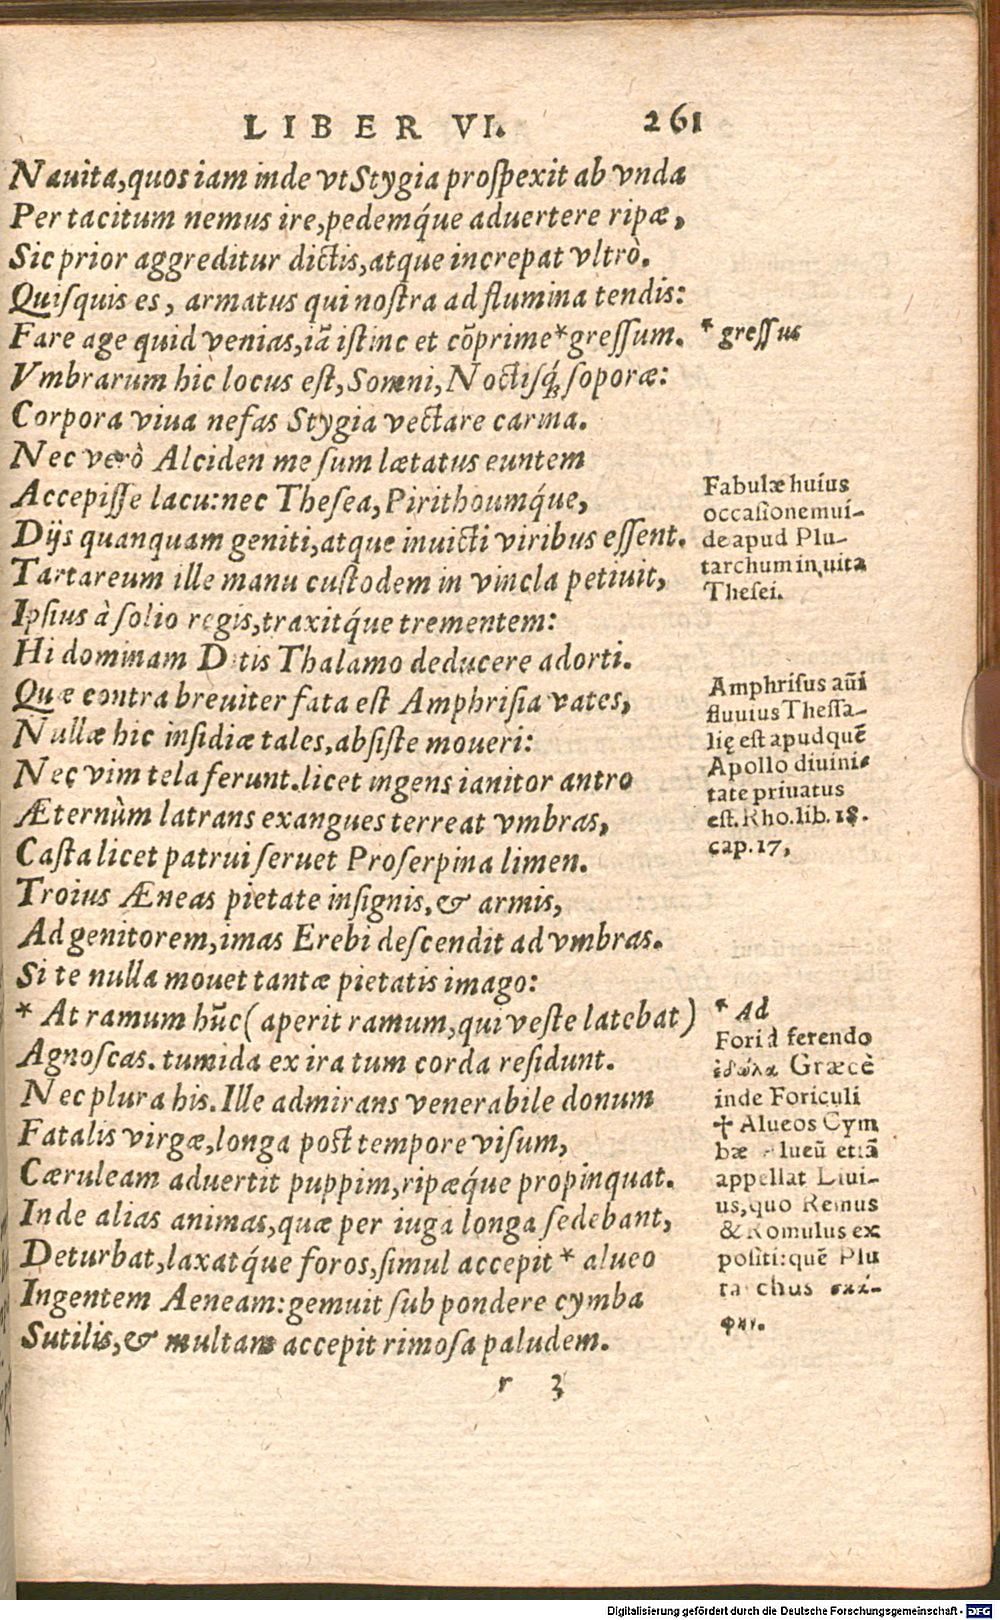 LIBER VI. 261
Nauita, quos iam inde vt Stygia prospexit ab vnda
Per tacitum nemus ire, pedemq́ue aduertere ripæ,
Sic prior aggreditur dictis, atque increpat vltrò.
Quisquis es, armatus qui nostra ad flumina tendis:
Fare age quid venias, iã istinc et cõprime*gressum.
Vmbrarum hic locus est, Somni, Noctisq́; soporæ:
Corpora viua nefas Stygia vectare carina.
Nec verò Alciden me sum lætatus euntem
Accepisse lacu: nec Thesea, Pirithoumq́ue,
Dijs quanquam geniti, atque inuicti viribus essent.
Tartareum ille manu custodem in vincla petiuit,
Ipsius à solio regis, traxitq́ue trementem:
Hi dominam Ditis Thalamo deducere adorti.
Quæ contra breuiter fata est Amphrisia vates,
Nullæ hic insidiæ tales, absiste moueri:
Nec vim tela ferunt. licet ingens ianitor antro
Æternùm latrans exangues terreat vmbras,
Casta licet patrui seruet Proserpina limen.
Troius Æneas pietate insignis, & armis,
Ad genitorem, imas Erebi descendit ad vmbras.
Si te nulla mouet tantæ pietatis imago:
* At ramum hũc (aperit ramum, qui veste latebat)
Agnoscas. tumida ex ira tum corda residunt.
Nec plura his. Ille admirans venerabile donum
Fatalis virgæ, longa post tempore visum,
Cæruleam aduertit puppim, ripæq́ue propinquat.
Inde alias animas, quæ per iuga longa sedebant,
Deturbat, laxatq́ue foros, simul accepit * alueo
Ingentem Aeneam: gemuit sub pondere cymba
Sutilis, & multam accepit rimosa paludem.
r 3
* gressus
Fabulæ huius
occasionem ui-
de apud Plu-
tarchum in uita
Thesei.
Amphrisus aũt
fluuius Thessa-
lię est apud quẽ
Apollo diuini-
tate priuatus
est. Rho. lib. 18.
cap. 17,
* Ad
Fori à ferendo
Græcè
inde Foriculi
✢ Alueos Cym
bæ alueũ etiã
appellat Liui-
us, quo Remus
& Romulus ex
positi: quẽ Plu
tarchus σκά-
φην.
Digitalisierung gefördert durch die Deutsche Forschungsgemeinschaft - DFG